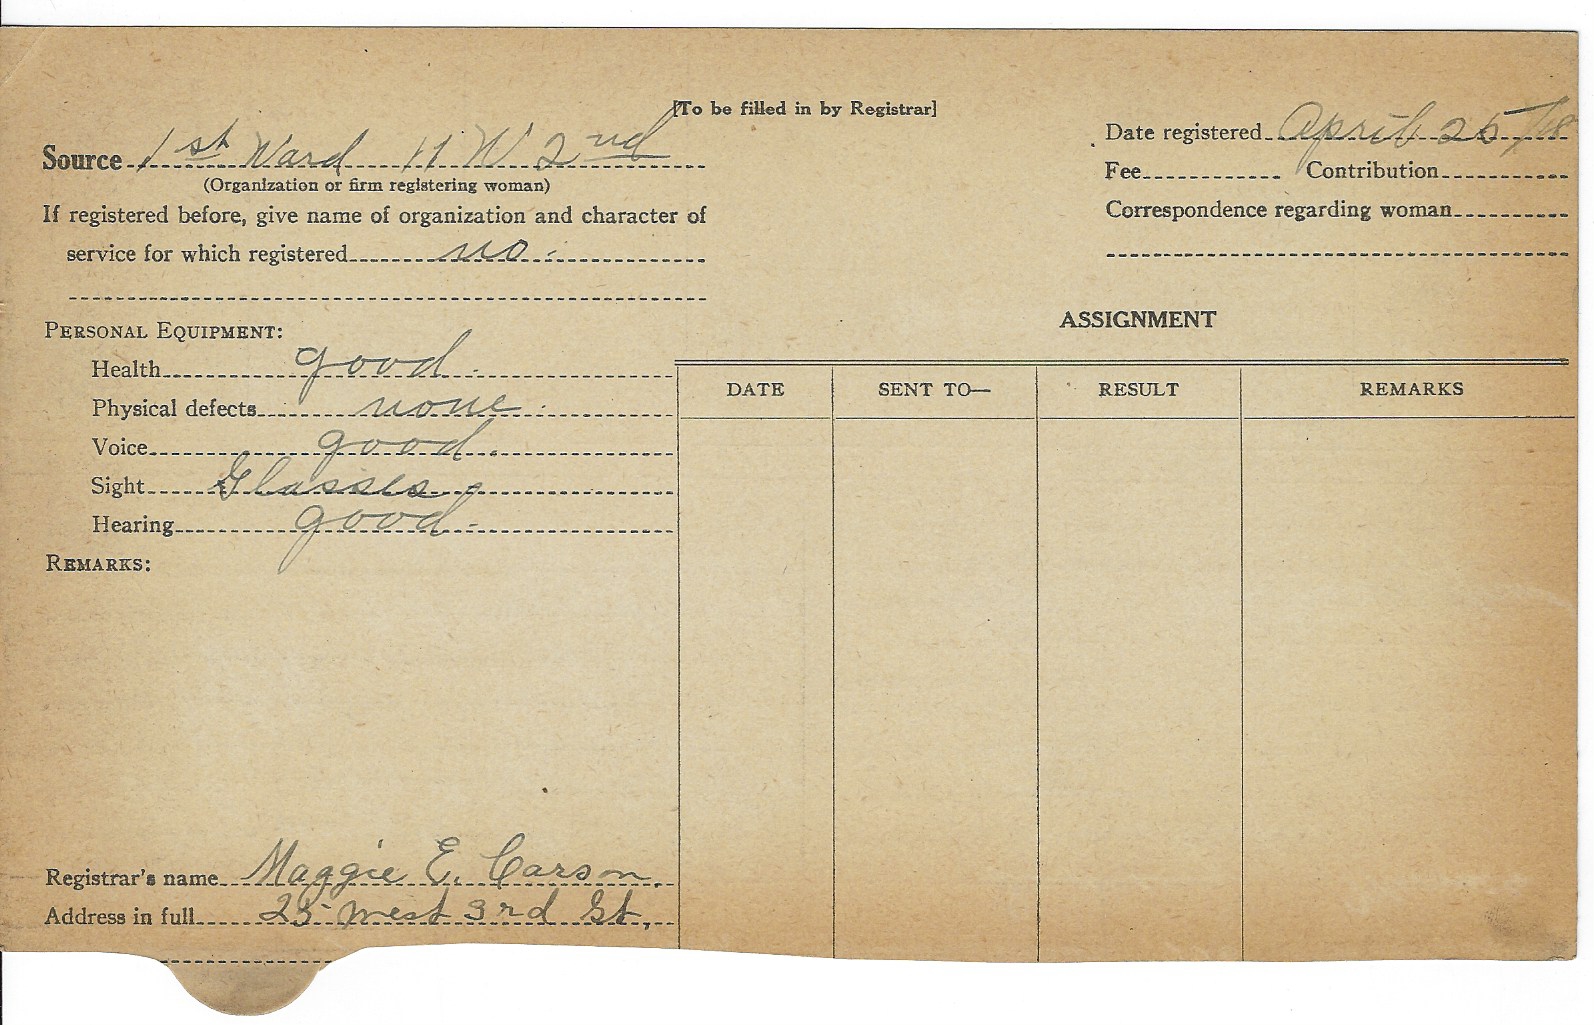 [To be filled in by Registrar]
Source 1st Ward 11 W 2nd
(Organization or firm registering woman)
If registered before, give name of organization and character of
service for which registered no.
Date registered April 25/18
Fee Contribution
Correspondence regarding woman
PERSONAL EQUIPMENT:
Health good.
Physical defects none.
Voice good.
Sight Glasses.
Hearing good.
REMARKS:
ASSIGNMENT
DATE SENT TO— RESULT REMARKS
Registrar's name Maggie E. Carson.
Address in full 25 west 3rd St,